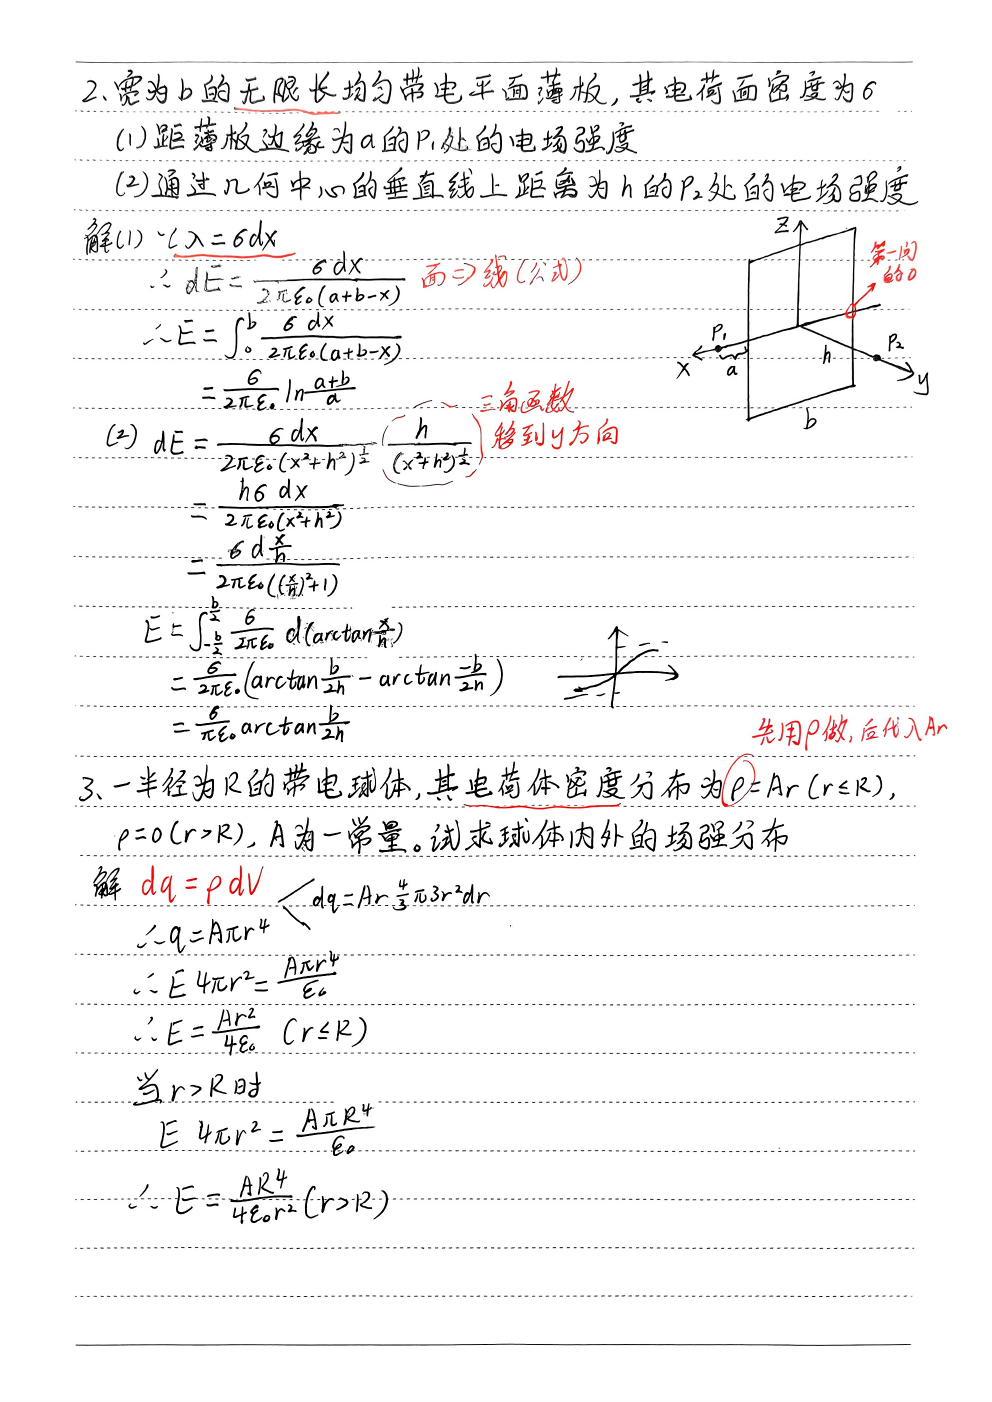 2、宽为b的无限长均匀带电平面薄板,其电荷面密度为σ
(1)距薄板边缘为a的P₁处的电场强度
(2)通过几何中心的垂直线上距离为h的P₂处的电场强度
解(1) ∵λ=σdx
∴ dE = σdx / 2πε₀(a+b-x) 面⇒线(公式)
∴E = ∫₀ᵇ σdx / 2πε₀(a+b-x)
= σ/2πε₀ ln (a+b)/a
Z
第一问
的0
P₁
P₂
X
a
h
y
b
(2) dE = σdx / 2πε₀(x²+h²)^½ · h / (x²+h²)^½ 三角函数
移到y方向
= hσ dx / 2πε₀(x²+h²)
= σ d x/h / 2πε₀((x/h)²+1)
E = ∫_{-b/2}^{b/2} σ/2πε₀ d(arctan x/h)
= σ/2πε₀ (arctan b/2h - arctan -b/2h)
= σ/πε₀ arctan b/2h
先用ρ做,后代入Ar
3、一半径为R的带电球体,其电荷体密度分布为ρ=Ar(r≤R),
ρ=0(r>R),A为一常量。试求球体内外的场强分布
解 dq=ρdV dq=Ar 4/3 π3r²dr
∴q=Aπr⁴
∴E 4πr² = Aπr⁴/ε₀
∴E = Ar²/4ε₀ (r≤R)
当r>R时
E 4πr² = AπR⁴/ε₀
∴ E = AR⁴/4ε₀r² (r>R)